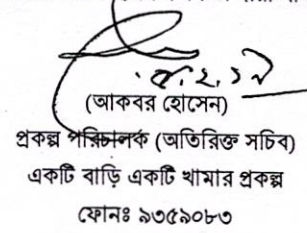 ২.১৭
(আকবর হোসেন)
প্রকল্প পরিচালক (অতিরিক্ত সচিব)
একটি বাড়ি একটি খামার প্রকল্প
ফোনঃ ৯৩৫৯০৮৩